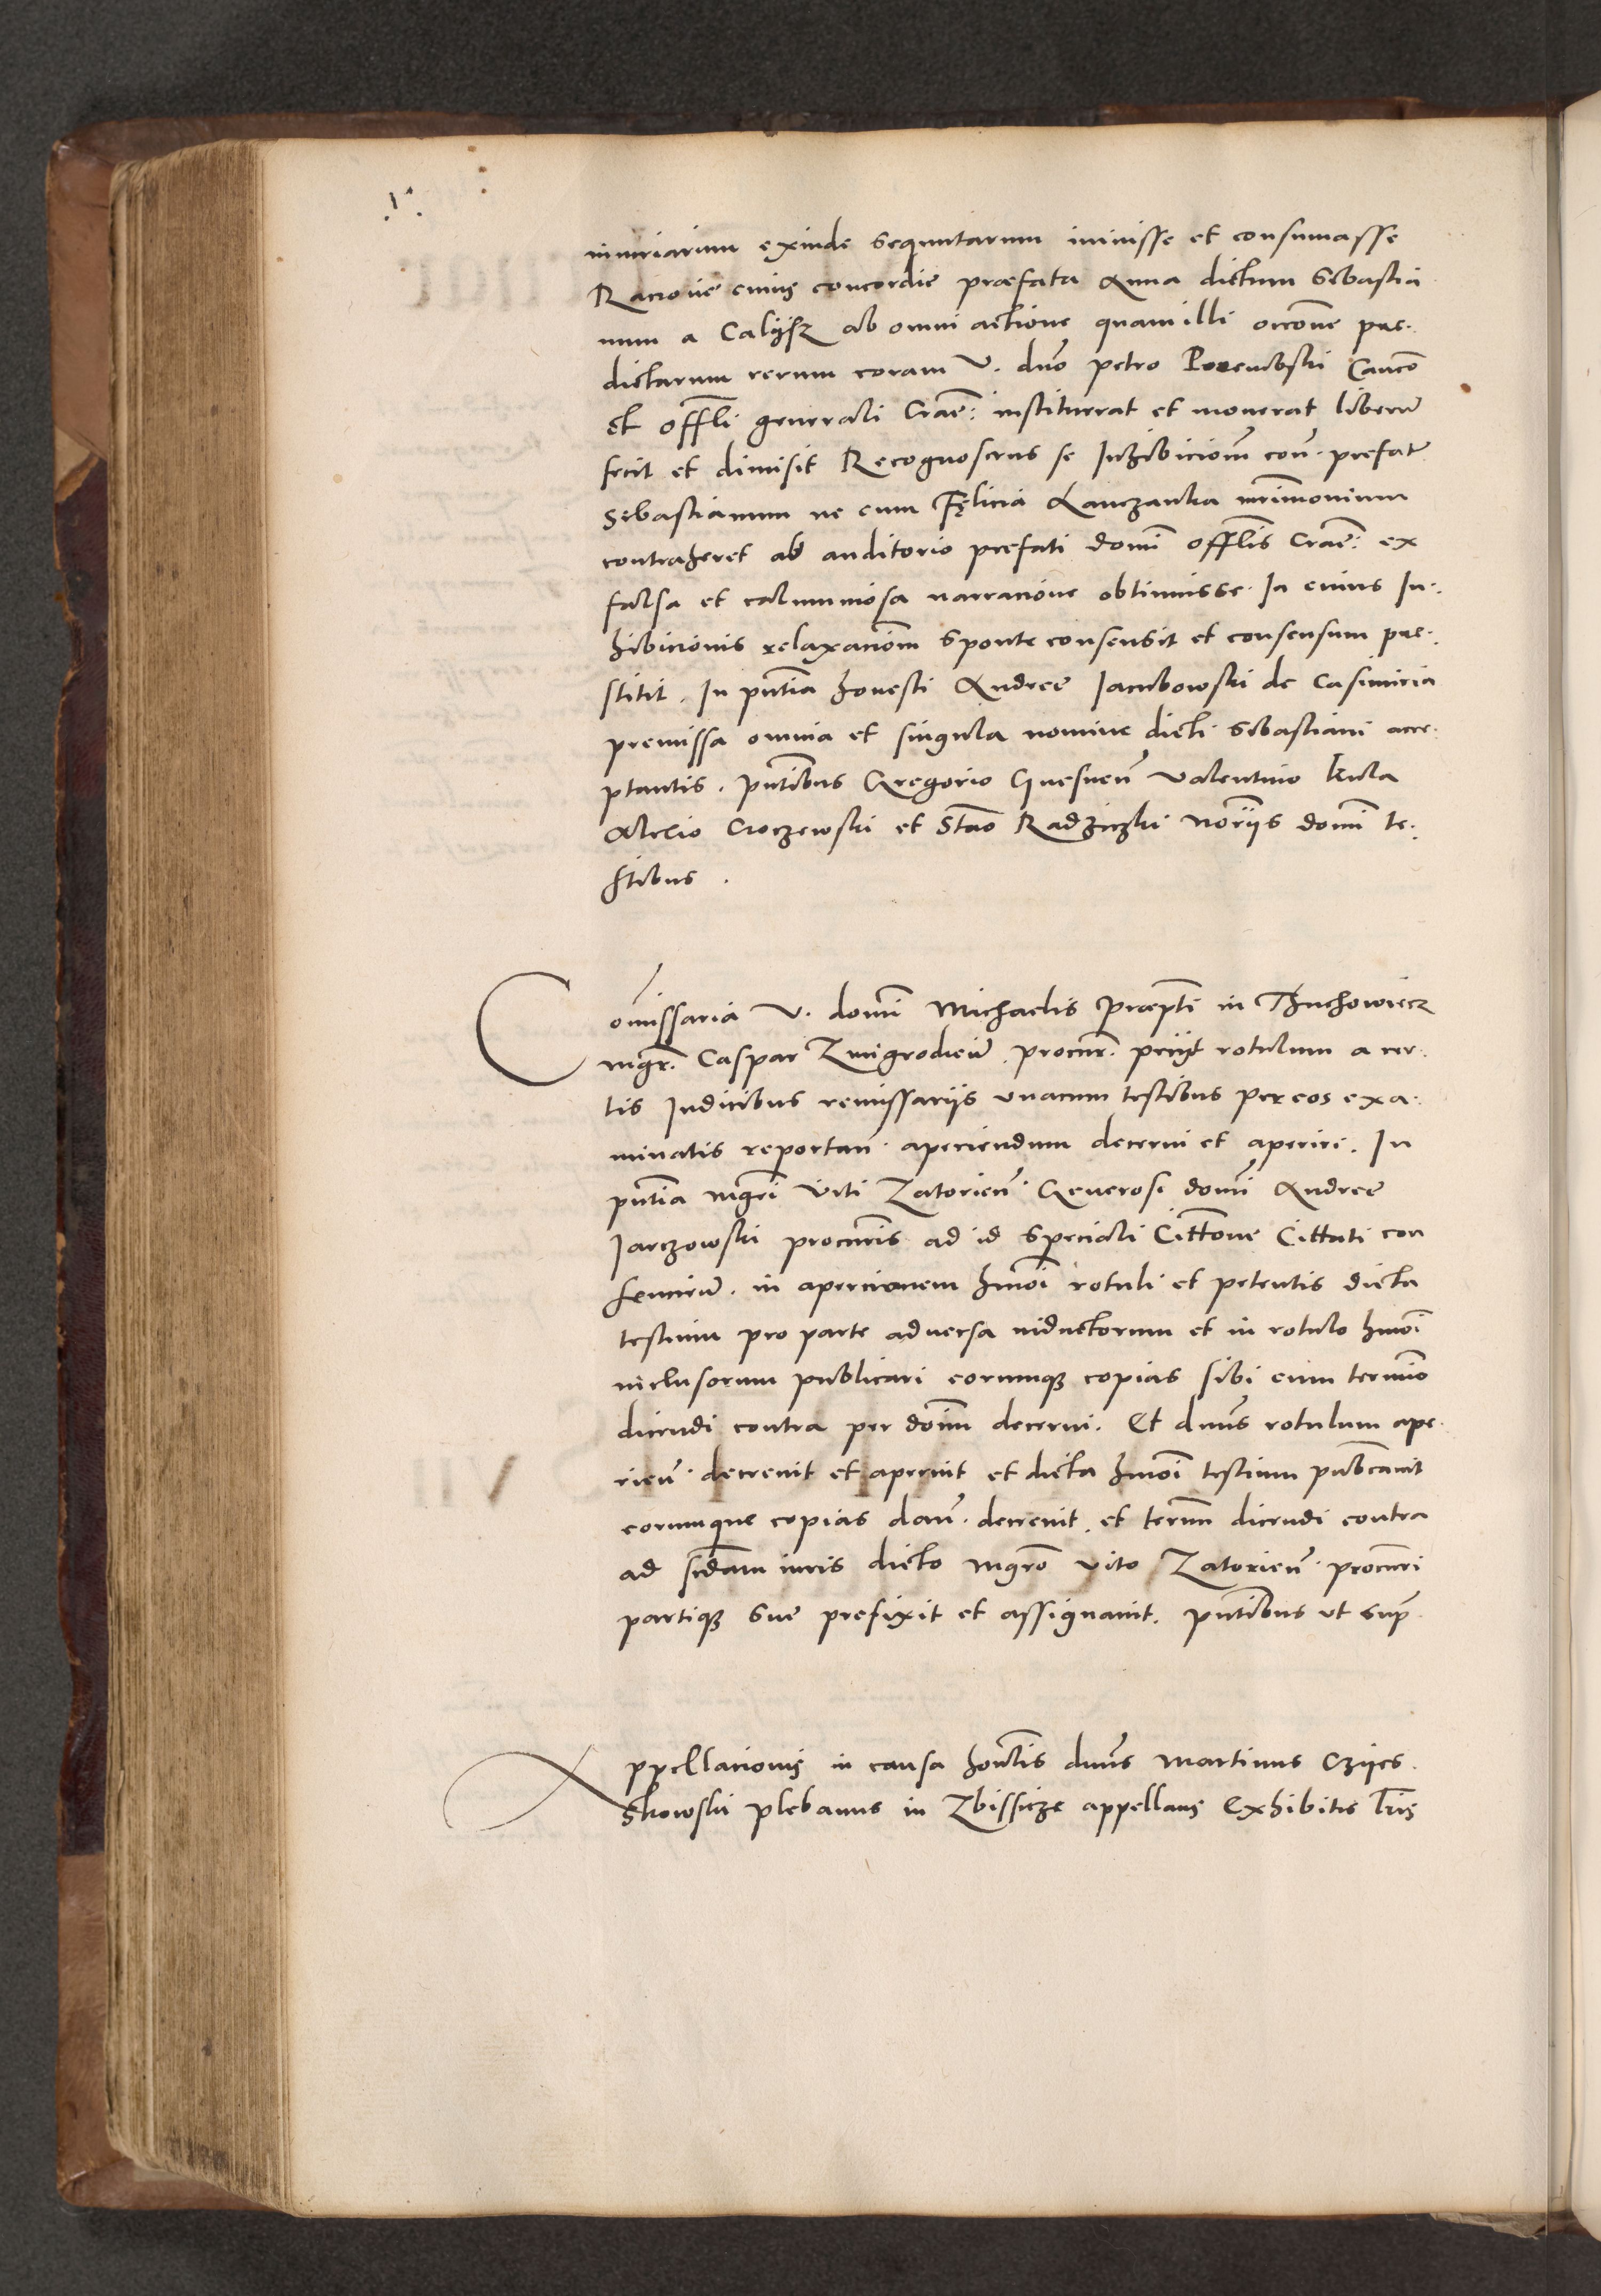 iniuriarum exinde sequutarum iniuisse et consumasse
Racione cuius concordie præfata Anna dictum Sebastia
num a Calijsz ab omni actione quam illi occone præ.
dictarum rerum coram V. dno petro Porembski Canco
et offli generali Crac: instituerat et mouerat liberum
fecit et dimisit Recognoscens se Inhibiciom con. prefat
Sebastianum ne cum Fęlicia Lanczanka mrimonium
contraheret ab auditorio prefati domi offlis Crac: ex
falsa et calumniosa narracione obtinuisse. In cuius In.
hibicionis relaxaciom sponte consensit et consensum præ.
stitit. In pntia honesti Andree Jacubowski de Casimiria
premissa omnia et singula nomine dicti Sebastiani acce.
ptantis. pntibus Gregorio Gnesnen Valentino Kula
Alexio Croczewski et Stao Radziczki Norijs domi te.
stibus.
Comissaria V. domi Michaelis Præpti in Thuchowiecz
mgr. Caspar Zmigrodien. procur. pecijt rotulum a cer.
tis Iudicibus remissarijs vnacum testibus per eos exa.
minatis reportan. aperiendum decerni et aperiri. In
pntia mgri Viti Zatorien. Generosi domi Andree
Jarczowski procuris ad id speciali Cittone Cittati con
sencien. in apercionem hmoi rotuli et petentis dicta
testium pro parte aduersa inductorum et in rotulo hmoi
inclusorum publicari eorumq copias sibi cum termio
dicendi contra per dom decerni. Et dnus rotulum ape.
rien. decreuit et aperuit et dicta hmoi testium publicauit
eorumque copias dan. decreuit. et termi dicendi contra
ad sedam iuris dicto mgro Vito Zatorien. procuri
partiq sue prefixit et assignauit. pntibus vt sup
Appellacionis in causa honlis dnus Martinus Czijes.
skowski plebanus in Zbissicze appellans Exhibitis lris